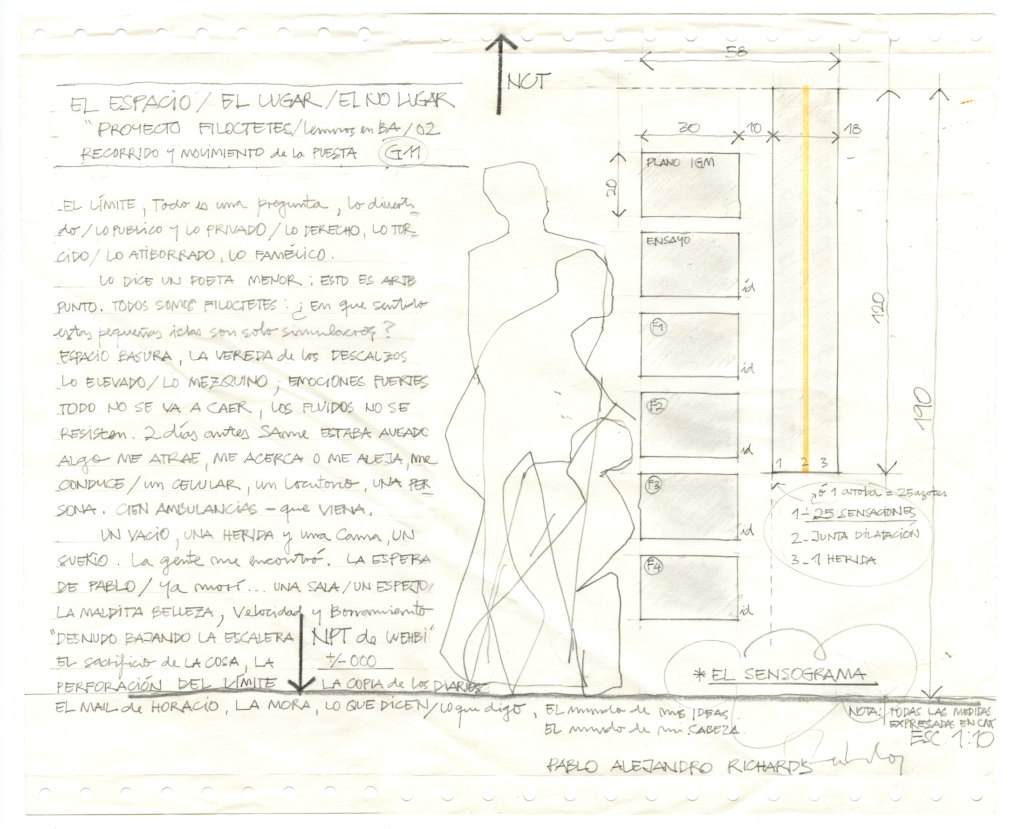 EL ESPACIO / EL LUGAR / EL NO LUGAR
"PROYECTO FILOCTETES/lemnos en BA/02
RECORRIDO Y MOVIMIENTO de la PUESTA G11
EL LÍMITE, Todo es una pregunta, lo diverti-
do/LO PUBLICO Y LO PRIVADO/LO DERECHO, LO TOR-
CIDO/LO ATIBORRADO, LO FAMÉLICO.
LO DICE UN POETA MENOR: ESTO ES ARTE
PUNTO. TODOS SOMOS FILOCTETES: ¿En que sentido
estas pequeñas islas son solo simulacros?
ESPACIO BASURA, LA VEREDA de los DESCALZOS
LO ELEVADO/LO MEZQUINO, EMOCIONES FUERTES
TODO NO SE VA A CAER, LOS FLUIDOS NO SE
RESISTEN. 2 días antes ESTABA
Algo ME ATRAE, ME ACERCA O ME ALEJA, me
CONDUCE/un CELULAR, un Locutorio, UNA PER
SONA. CIEN AMBULANCIAS - que VIENA.
UN VACIO, UNA HERIDA y una Cama, UN
SUEÑO. La gente me encontró. LA ESPERA
DE PABLO/Ya morí... UNA SALA/UN ESPEJO,
LA MALDITA BELLEZA, Velocidad y Borramiento
"DESNUDO BAJANDO LA ESCALERA
EL sacrificio de LA COSA, LA
PERFORACIÓN DEL LÍMITE
NPT de WEHBI"
+/-000
LA COPIA de los DIARIOS
EL MAIL de HORACIO, LA MORA, LO QUE DICEN/Lo que digo, EL mundo de mis IDEAS.
EL mundo de mi CABEZA.
PABLO ALEJANDRO RICHARDS
NCT
58
30
10
18
20
PLANO IGM
ENSAYO
id
F1
id
F2
id
F3
id
F4
id
120
190
1 2 3
ó 1 arroba = 25 azotes
1-25 SENSACIONES
2- JUNTA DILATACIÓN
3-1 HERIDA
* EL SENSOGRAMA
NOTA: TODAS LAS MEDIDAS
EXPRESADAS EN CM
ESC. 1:10